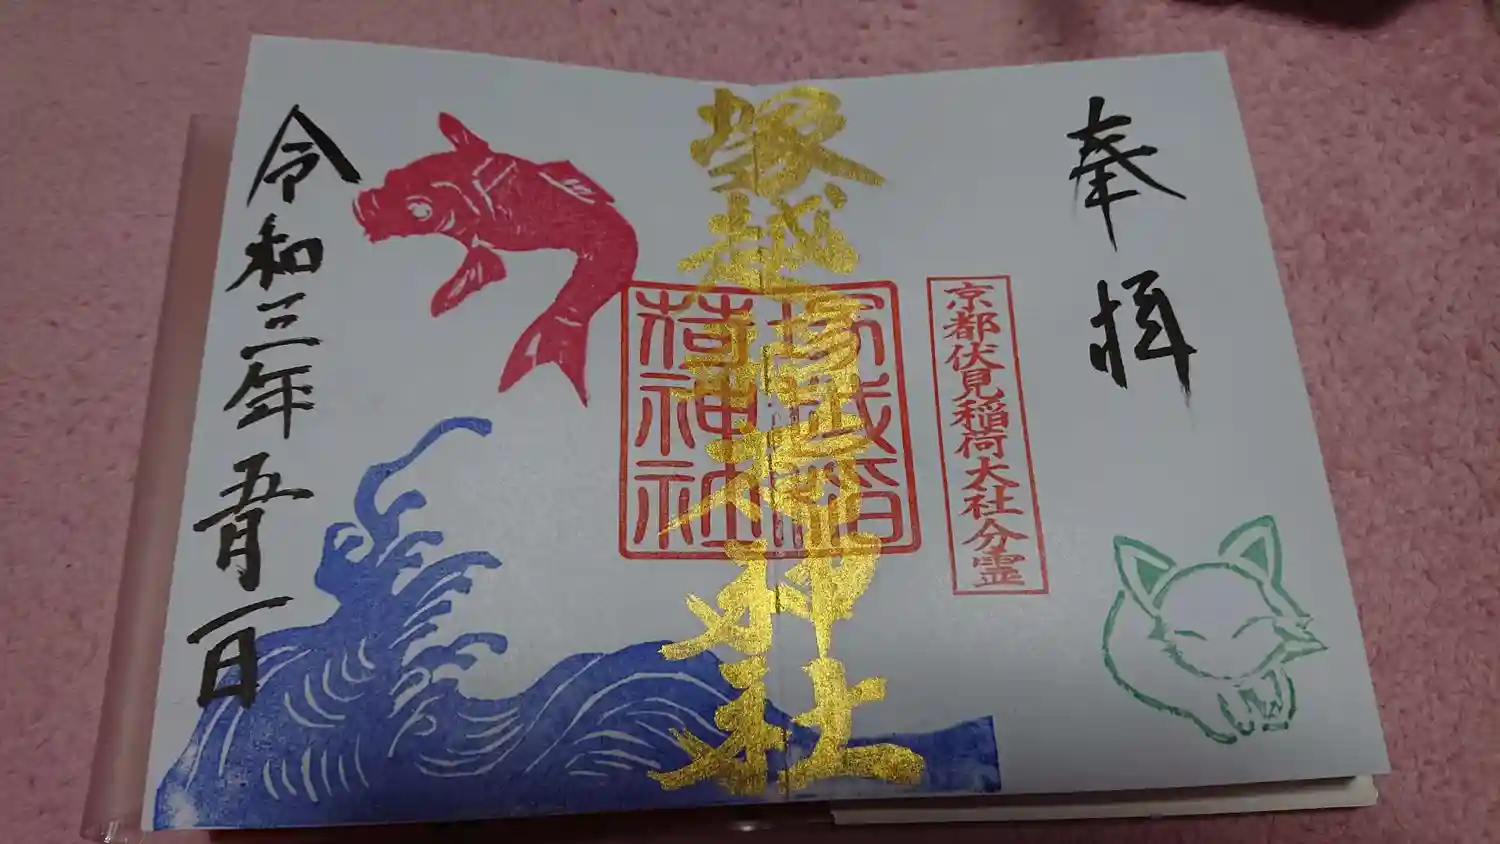 奉拝
京都伏見稲荷大社分霊
塚越稲荷神社
塚越稲
荷神社
令和三年五月一日